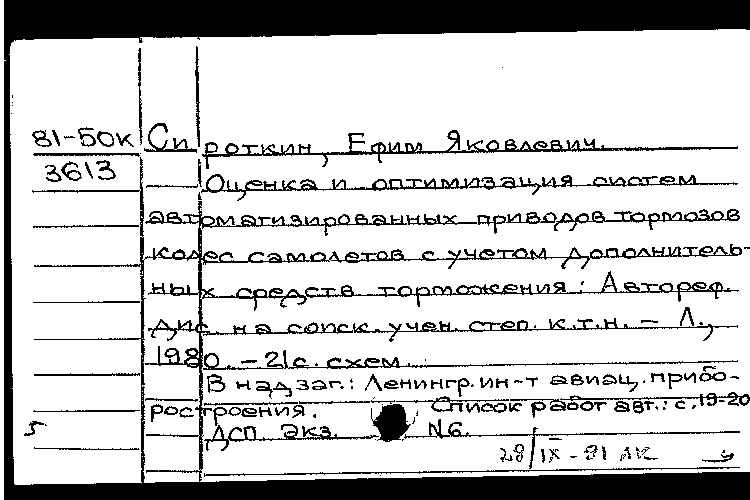 81-50к Сироткин, Ефим Яковлевич.
3613 Оценка и оптимизация систем
автоматизированных приводов тормозов
колес самолетов с учетом дополнитель-
ных средств торможения: Автореф.
дис. на соиск. учен. степ. к.т.н. – Л.,
1980. – 21 с. схем.
В надзаг.: Ленингр. ин-т авиац. прибо-
ростроения. Список работ авт.: с. 19-20
5 ДСП. Экз. №6.
28/IX - 81 ЛК